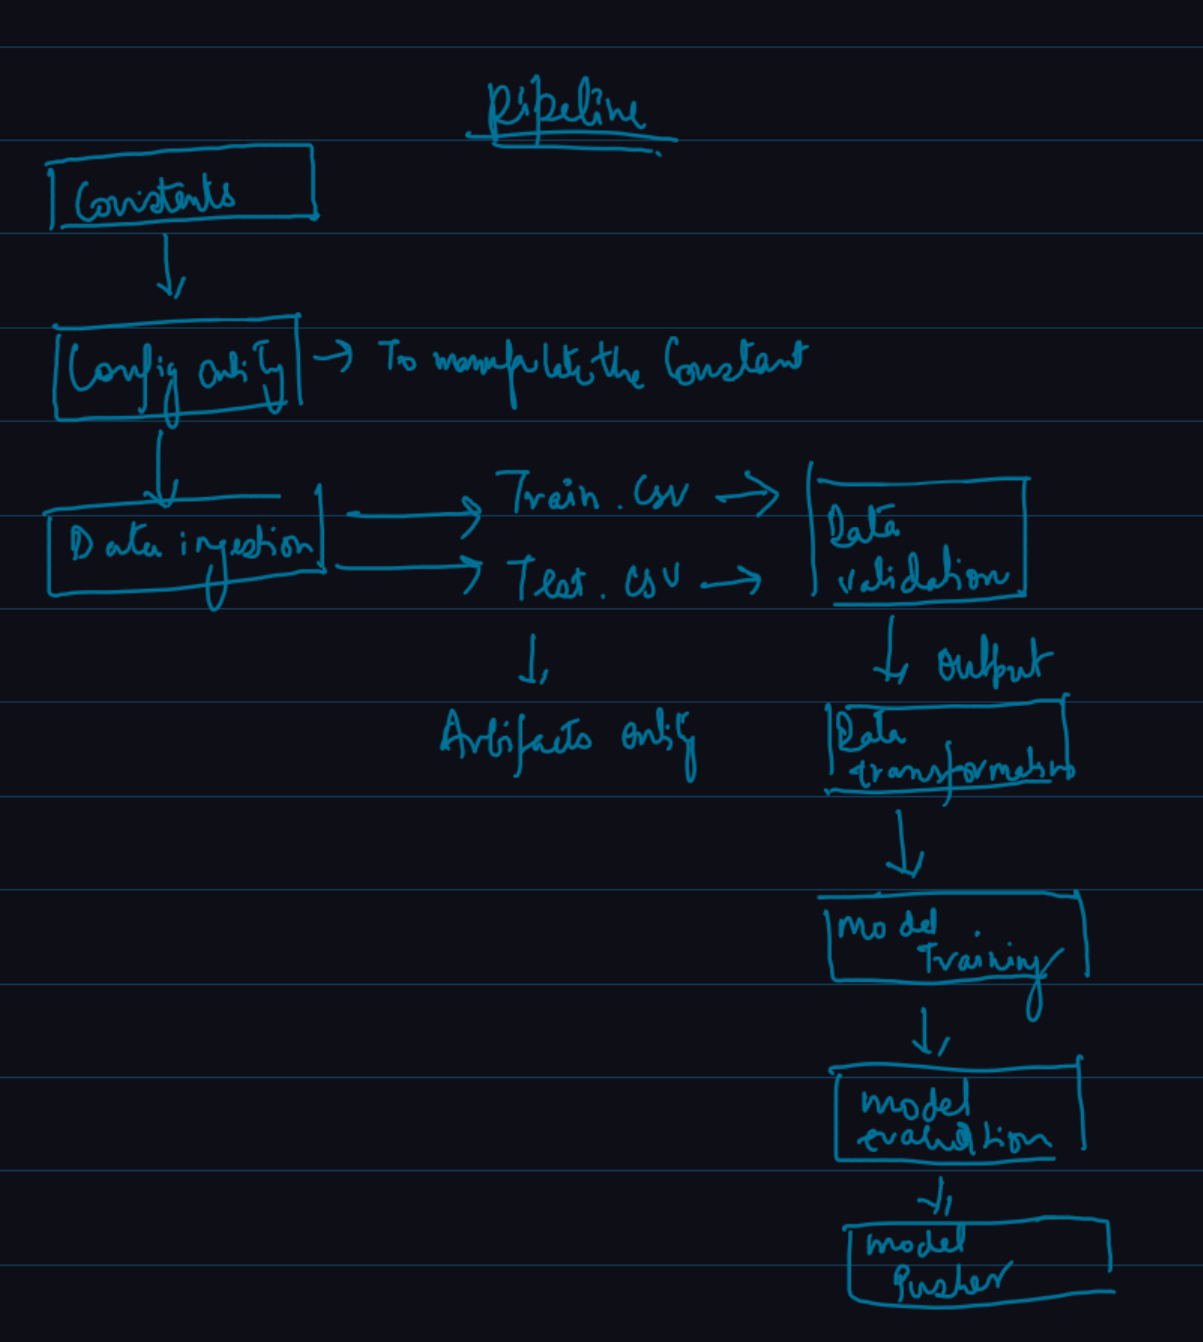 Pipeline
Constents
Config entity → To manupulate the Constant
Data ingestion
Train.csv
Test.csv
Data
validation
output
Artifacts entity
Data
transformation
model
Training
model
evaluation
model
Pusher